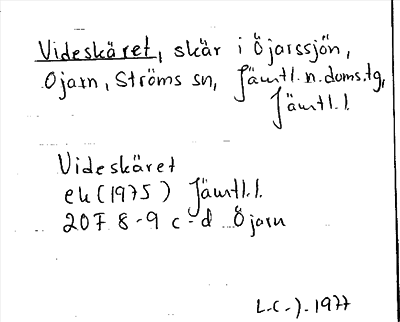 Videskäret, skär i Öjarssjön,
Ojarn, Ströms sn, Jämtl.n.doms.tg,
Jämtl.l.
Videskäret
ek (1975) Jämtl.l.
20F 8-9 c-d Öjarn
L.(-). 1977